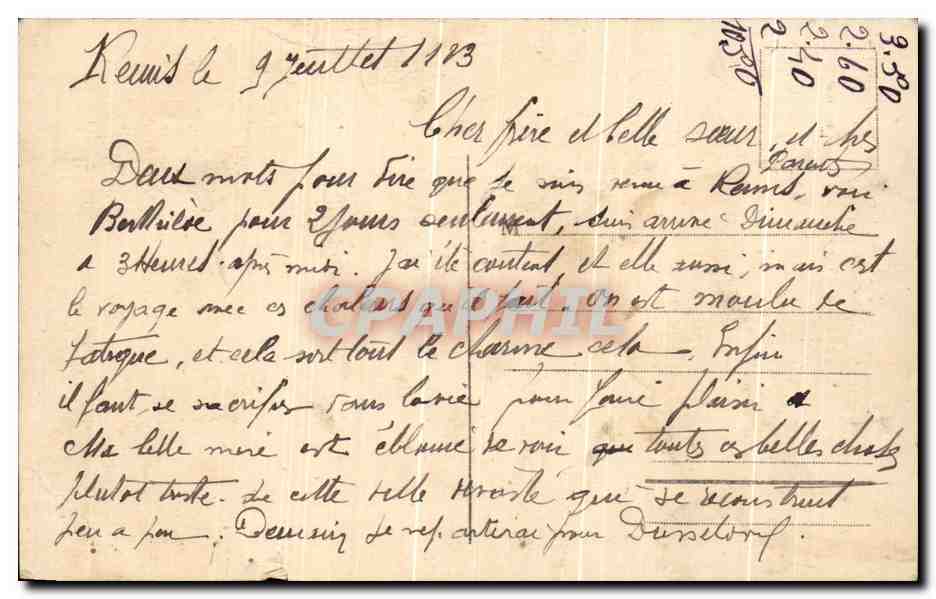 Reims le 9 Juillet 1923
3.50
2.60
2.40
2
10.50
Cher frère et belle sœur, et chers
Parents
Deux mots pour dire que je suis venu à Reims, voir
pour 2 Jours seulement, suis arrivé Dimanche
a 3 Heures après midi. J'ai été content, et elle aussi, mais c'est
le voyage avec ces chaleurs qu'il fait, on est moulu de
fatigue, et cela sort tout le charme, cela. Enfin
il faut se sacrifier dans la vie pour faire plaisir a
Ma belle mère est éblouie de voir que toutes ces belles choses
plutot triste. de cette ville dévastée qui se reconstruit
peu a peu. Demain je repartirai pour Dusseldorf.
CPAPHIL